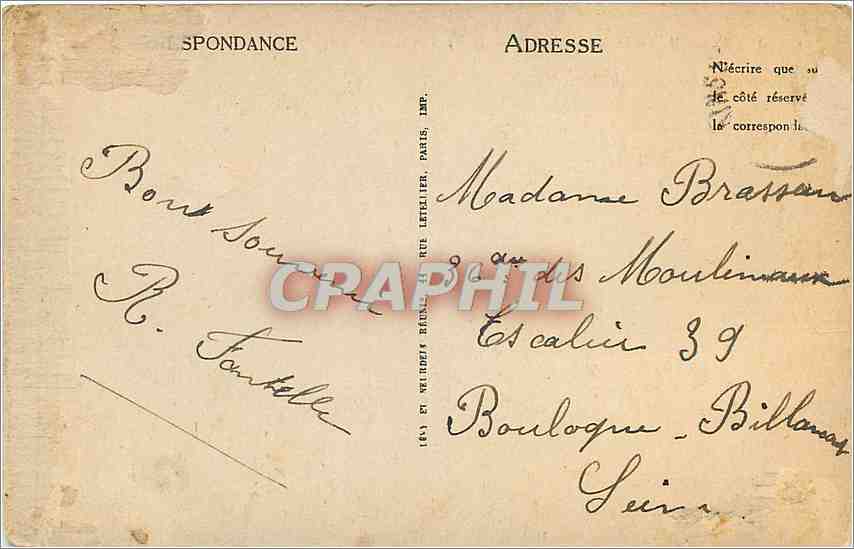 SPONDANCE
ADRESSE
N'écrire que su
le côté réservé
la correspon la
Bons Souvenir
R. Fontelle
LÉVY ET NEURDEIN RÉUNIS, 44 RUE LETELLIER, PARIS, IMP.
CPARHIL
Madame Brasseur
36 des Moulineaux
Escalier 39
Boulogne - Billancourt
Seine